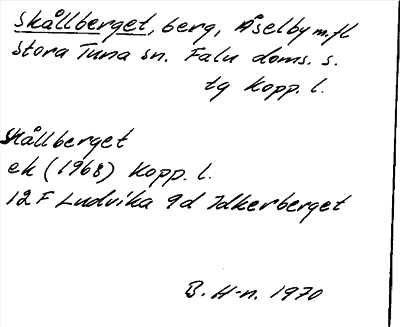 Skållberget, berg, Åselby m.fl
Stora Tuna sn. Falu doms. s.
tg Kopp. l.
Skållberget
ek (1968) Kopp. l.
12 F Ludvika 9d Idkerberget
B. H-n. 1970